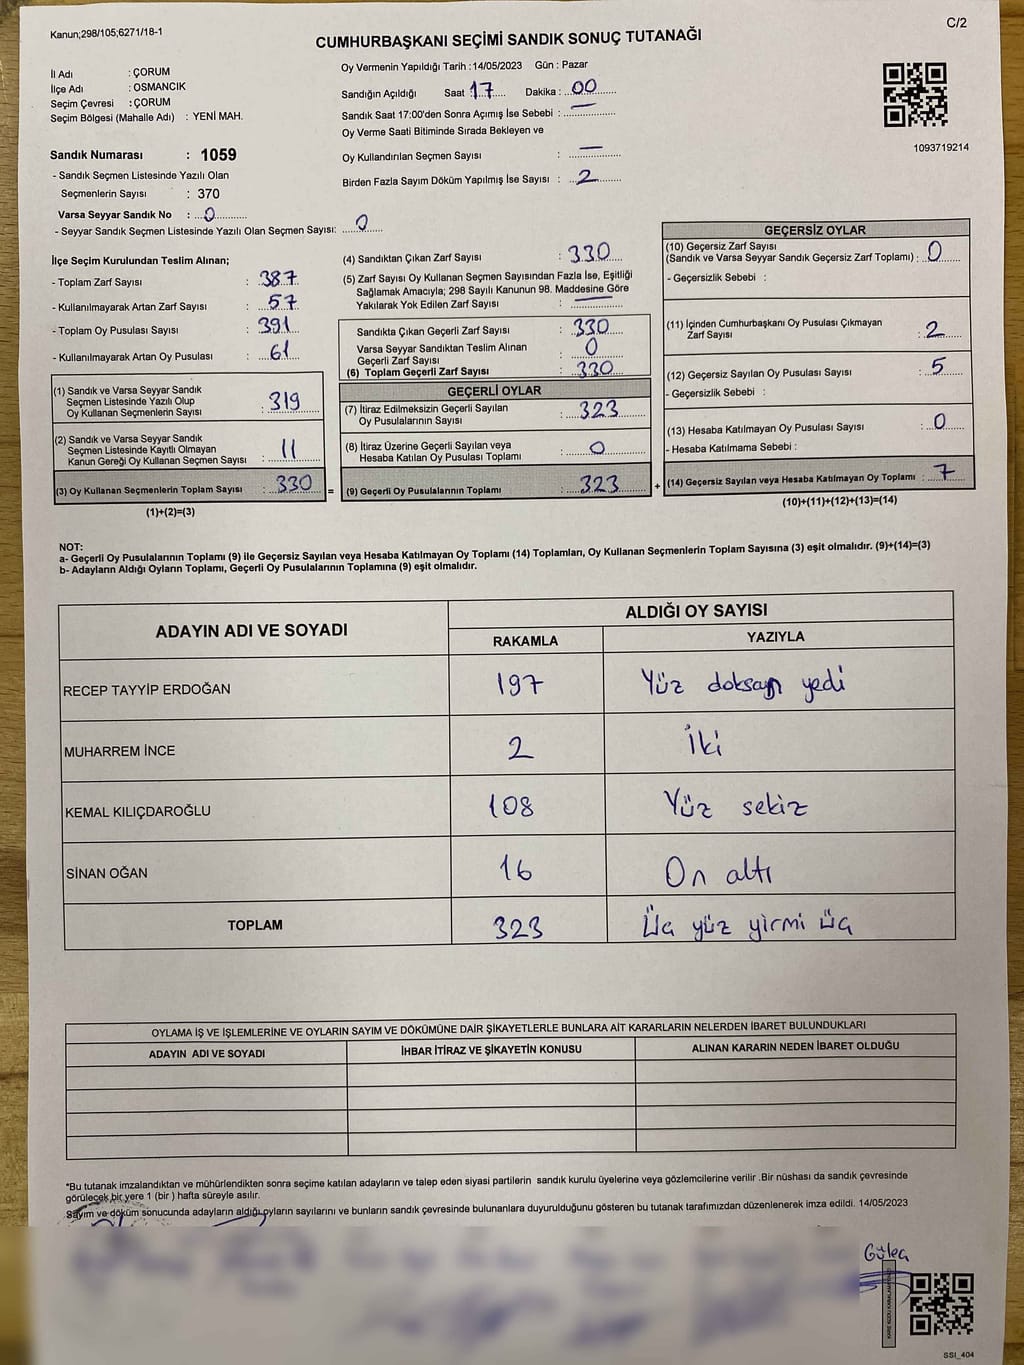 Kanun;298/105;6271/18-1
C/2
CUMHURBAŞKANI SEÇİMİ SANDIK SONUÇ TUTANAĞI
İl Adı : ÇORUM
İlçe Adı : OSMANCIK
Seçim Çevresi : ÇORUM
Seçim Bölgesi (Mahalle Adı) : YENİ MAH.
Oy Vermenin Yapıldığı Tarih :14/05/2023 Gün : Pazar
Sandığın Açıldığı Saat 17 Dakika : 00
Sandık Saat 17:00'den Sonra Açımış İse Sebebi : —
Oy Verme Saati Bitiminde Sırada Bekleyen ve
Oy Kullandırılan Seçmen Sayısı : —
Birden Fazla Sayım Döküm Yapılmış İse Sayısı : 2
1093719214
Sandık Numarası : 1059
- Sandık Seçmen Listesinde Yazılı Olan
Seçmenlerin Sayısı : 370
Varsa Seyyar Sandık No : 0
- Seyyar Sandık Seçmen Listesinde Yazılı Olan Seçmen Sayısı: 0
İlçe Seçim Kurulundan Teslim Alınan;
- Toplam Zarf Sayısı : 387
- Kullanılmayarak Artan Zarf Sayısı : 57
- Toplam Oy Pusulası Sayısı : 391
- Kullanılmayarak Artan Oy Pusulası : 61
(1) Sandık ve Varsa Seyyar Sandık
Seçmen Listesinde Yazılı Olup
Oy Kullanan Seçmenlerin Sayısı : 319
(2) Sandık ve Varsa Seyyar Sandık
Seçmen Listesinde Kayıtlı Olmayan
Kanun Gereği Oy Kullanan Seçmen Sayısı : 11
(3) Oy Kullanan Seçmenlerin Toplam Sayısı : 330 =
(1)+(2)=(3)
(4) Sandıktan Çıkan Zarf Sayısı : 330
(5) Zarf Sayısı Oy Kullanan Seçmen Sayısından Fazla İse, Eşitliği
Sağlamak Amacıyla; 298 Sayılı Kanunun 98. Maddesine Göre
Yakılarak Yok Edilen Zarf Sayısı : —
Sandıkta Çıkan Geçerli Zarf Sayısı : 330
Varsa Seyyar Sandıktan Teslim Alınan
Geçerli Zarf Sayısı : 0
(6) Toplam Geçerli Zarf Sayısı : 330
GEÇERLİ OYLAR
(7) İtiraz Edilmeksizin Geçerli Sayılan
Oy Pusulalarının Sayısı : 323
(8) İtiraz Üzerine Geçerli Sayılan veya
Hesaba Katılan Oy Pusulası Toplamı : 0
(9) Geçerli Oy Pusulalarının Toplamı : 323 +
GEÇERSİZ OYLAR
(10) Geçersiz Zarf Sayısı
(Sandık ve Varsa Seyyar Sandık Geçersiz Zarf Toplamı) : 0
- Geçersizlik Sebebi :
(11) İçinden Cumhurbaşkanı Oy Pusulası Çıkmayan
Zarf Sayısı : 2
(12) Geçersiz Sayılan Oy Pusulası Sayısı : 5
- Geçersizlik Sebebi :
(13) Hesaba Katılmayan Oy Pusulası Sayısı : 0
- Hesaba Katılmama Sebebi :
(14) Geçersiz Sayılan veya Hesaba Katılmayan Oy Toplamı : 7
(10)+(11)+(12)+(13)=(14)
NOT:
a- Geçerli Oy Pusulalarının Toplamı (9) ile Geçersiz Sayılan veya Hesaba Katılmayan Oy Toplamı (14) Toplamları, Oy Kullanan Seçmenlerin Toplam Sayısına (3) eşit olmalıdır. (9)+(14)=(3)
b- Adayların Aldığı Oyların Toplamı, Geçerli Oy Pusulalarının Toplamına (9) eşit olmalıdır.
ADAYIN ADI VE SOYADI
ALDIĞI OY SAYISI
RAKAMLA YAZIYLA
RECEP TAYYİP ERDOĞAN 197 Yüz doksan yedi
MUHARREM İNCE 2 İki
KEMAL KILIÇDAROĞLU 108 Yüz sekiz
SİNAN OĞAN 16 On altı
TOPLAM 323 Üç yüz yirmi üç
OYLAMA İŞ VE İŞLEMLERİNE VE OYLARIN SAYIM VE DÖKÜMÜNE DAİR ŞİKAYETLERLE BUNLARA AİT KARARLARIN NELERDEN İBARET BULUNDUKLARI
ADAYIN ADI VE SOYADI İHBAR İTİRAZ VE ŞİKAYETİN KONUSU ALINAN KARARIN NEDEN İBARET OLDUĞU
*Bu tutanak imzalandıktan ve mühürlendikten sonra seçime katılan adayların ve talep eden siyasi partilerin sandık kurulu üyelerine veya gözlemcilerine verilir .Bir nüshası da sandık çevresinde
görülecek bir yere 1 (bir ) hafta süreyle asılır.
Sayım ve döküm sonucunda adayların aldığı oyların sayılarını ve bunların sandık çevresinde bulunanlara duyurulduğunu gösteren bu tutanak tarafımızdan düzenlenerek imza edildi. 14/05/2023
SSİ_404